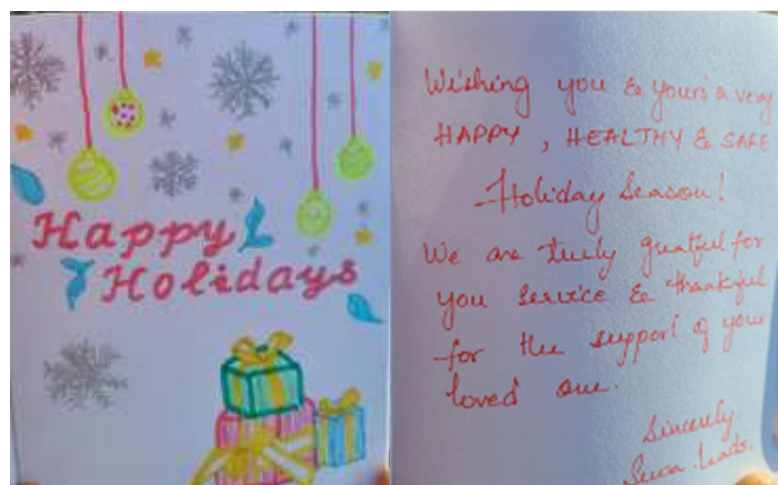 Happy
Holidays
Wishing you & yours a very
HAPPY, HEALTHY & SAFE
Holiday Season!
We are truly greatful for
you service & thankful
for the support of your
loved one.
Sincerely.